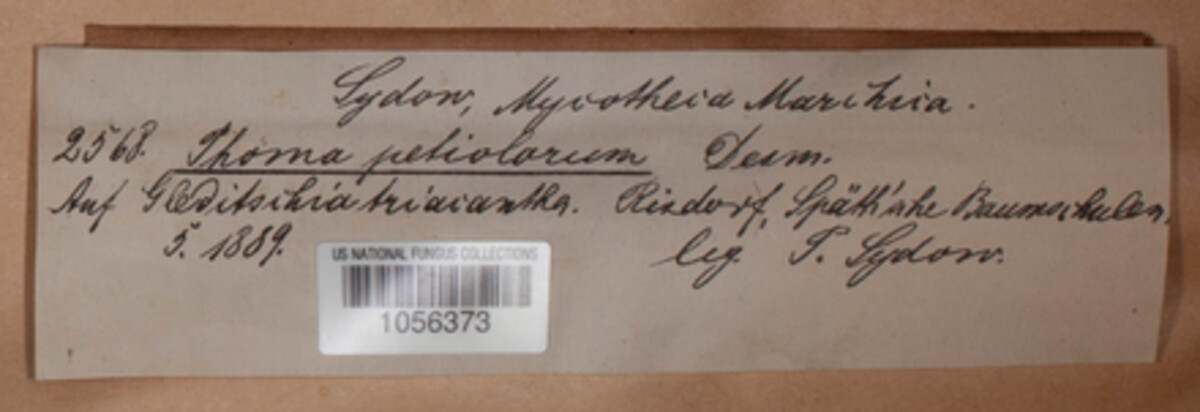 Sydow, Mycotheca Marchica.
2568. Phoma petiolorum Desm.
Auf Gleditschia triacantha. Rixdorf, Späth'sche Baumschulen.
5. 1889. leg. P. Sydow.
US NATIONAL FUNGUS COLLECTIONS
1056373